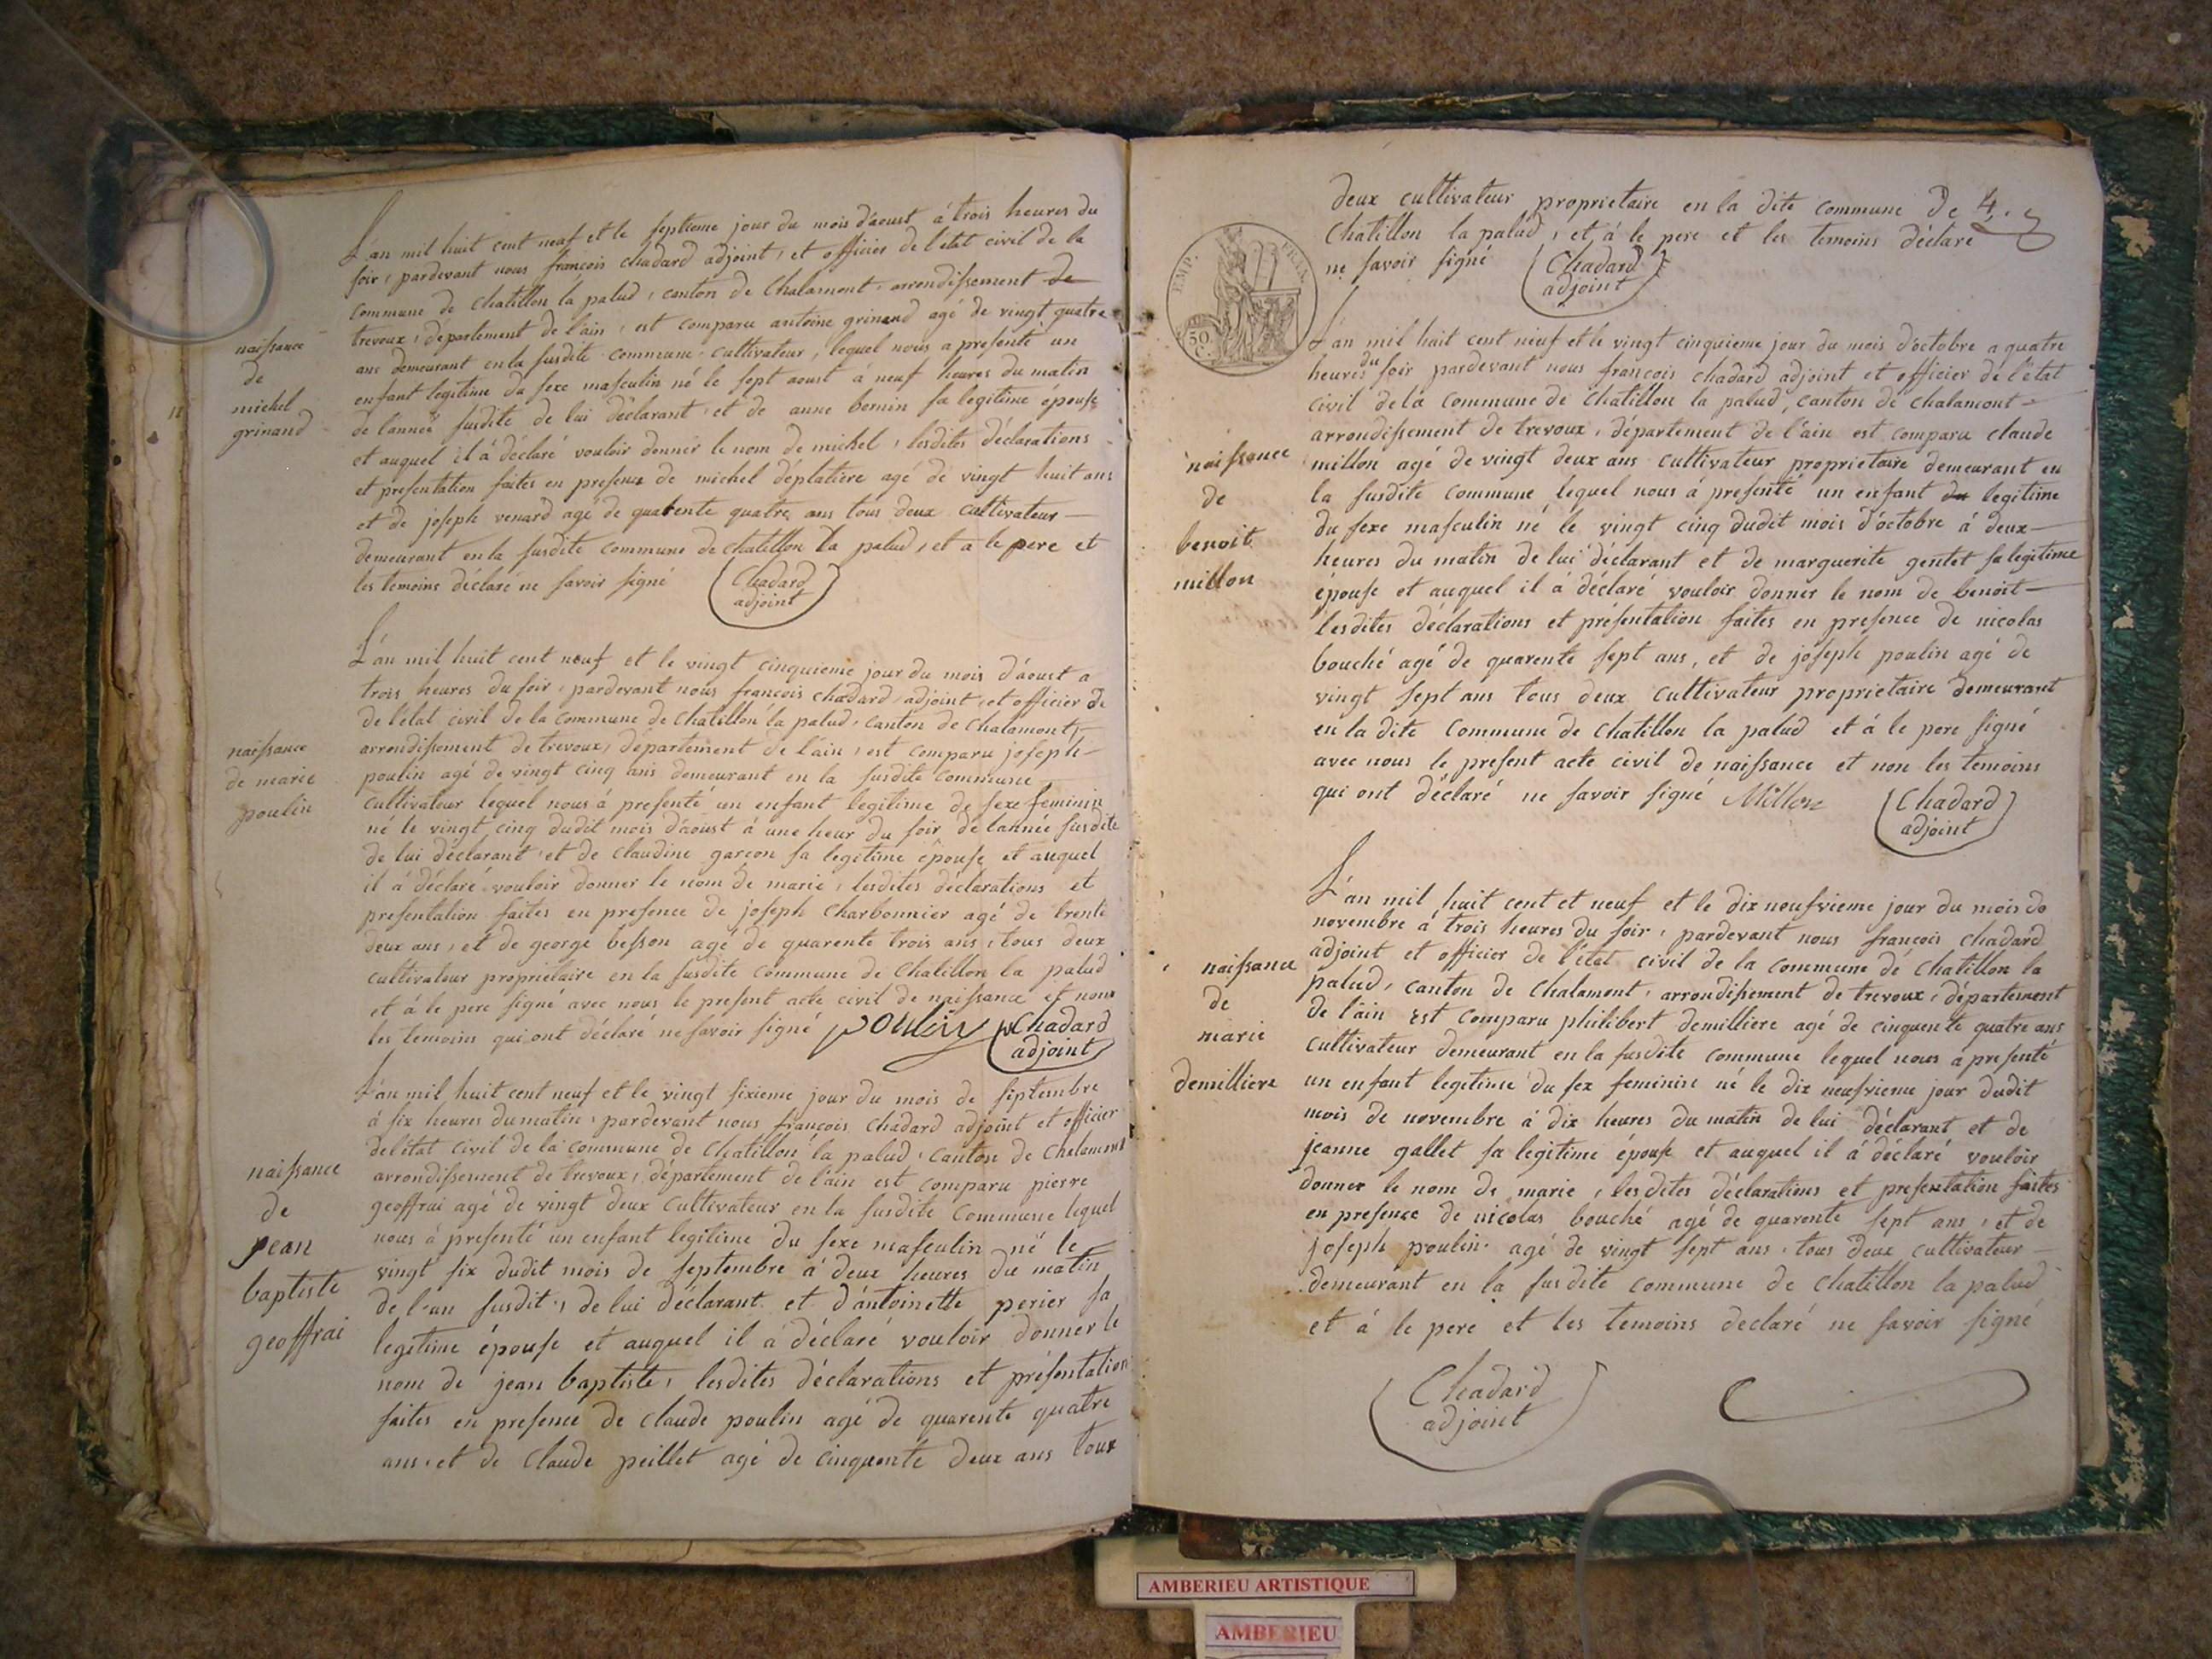 L'an mil huit cent neuf et le septieme jour du mois d'aoust á trois heures du
soir, pardevant nous françois chadard adjoint, et officier de l'état civil de la
commune de chatillon la palud, canton de Chalamont, arrondissement de
trevoux, département de l'ain, est comparu antoine grinand agé de vingt quatre
ans demeurant en la susdite commune, cultivateur, lequel nous a presenté un
enfant legitime du sexe masculin né le sept aoust á neuf heures du matin
de l'année susdite de lui déclarant, et de anne bernin sa legitime épouse
et auquel il á déclaré vouloir donner le nom de michel, lesdites déclarations
et presentation faites en presence de michel déplatière agé de vingt huit ans
et de joseph venard agé de quarente quatre ans tous deux cultivateur
demeurant en la susdite commune de chatillon la palud, et a le pere et
les temoins déclaré ne savoir signé
Chadard
adjoint
naissance
de
michel
grinand
11
L'an mil huit cent neuf et le vingt cinquieme jour du mois d'áoust a
trois heures du soir, pardevant nous françois chadard, adjoint, et officier de
de l'état civil de la commune de chatillon la palud, canton de chalamont,
arrondissement de trevoux, département de l'ain, est comparu joseph
poulin agé de vingt cinq ans demeurant en la susdite commune
cultivateur lequel nous á presenté un enfant legitime de sexe feminin
né le vingt cinq dudit mois d'aoust á une heur du soir de l'année susdite
de lui déclarant, et de claudine garçon sa legitime épouse et auquel
il á déclaré vouloir donner le nom de marie, lesdites déclarations et
presentation faites en presence de joseph charbonnier agé de trente
deux ans, et de george besson agé de quarente trois ans, tous deux
cultivateur proprietaire en la susdite commune de chatillon la palud
et á le pere signé avec nous le present acte civil de naissance et non
les temoins qui ont déclaré ne savoir signé poulin
Chadard
adjoint
naissance
de marie
poulin
L'an mil huit cent neuf et le vingt sixieme jour du mois de septembre
á six heures du matin, pardevant nous françois chadard adjoint et officier
de l'état civil de la commune de chatillon la palud, canton de Chalamont
arrondissement de trevoux, département de l'ain est comparu pierre
geoffrai agé de vingt deux cultivateur en la susdite commune lequel
nous á presenté un enfant legitime du sexe masculin né le
vingt six dudit mois de septembre á deux heures du matin
de l'an susdit, de lui déclarant et d'antoinette perier sa
legitime épouse et auquel il á déclaré vouloir donner le
nom de jean baptiste, lesdites déclarations et présentation
faites en presence de claude poulin agé de quarente quatre
ans, et de Claude peillet agé de cinquente deux ans tous
naissance
de
jean
baptiste
geoffrai
deux cultivateur proprietaire en la dite commune de 4.
Chatillon la palud, et á le pere et les temoins déclaré
ne savoir signé
Chadard
adjoint
EMP. FRAN.
50
C.
L'an mil huit cent neuf et le vingt cinquieme jour du mois d'octobre a quatre
heures du soir pardevant nous françois chadard adjoint et officier de l'état
civil de la commune de chatillon la palud, canton de chalamont
arrondissement de trevoux, département de l'ain est comparu claude
millon agé de vingt deux ans cultivateur proprietaire demeurant en
la susdite commune lequel nous á presenté un enfant du legitime
du sexe masculin né le vingt cinq dudit mois d'octobre á deux
heures du matin de lui déclarant et de marguerite gentet sa legitime
épouse et auquel il á déclaré vouloir donner le nom de benoit
lesdites déclarations et présentation faites en presence de nicolas
bouché agé de quarente sept ans, et de joseph poulin agé de
vingt sept ans tous deux cultivateur proprietaire demeurant
en la dite commune de chatillon la palud et á le pere signé
avec nous le present acte civil de naissance et non les temoins
qui ont déclaré ne savoir signé Millon
Chadard
adjoint
naissance
de
benoit
millon
L'an mil huit cent et neuf et le dix neufvieme jour du mois de
novembre á trois heures du soir, pardevant nous françois chadard
adjoint et officier de l'état civil de la commune de chatillon la
palud, canton de chalamont, arrondissement de trevoux, département
de l'ain est comparu philibert demilliere agé de cinquente quatre ans
cultivateur demeurant en la susdite commune lequel nous a presenté
un enfant legitime du sex feminin né le dix neufvieme jour dudit
mois de novembre á dix heures du matin de lui déclarant et de
jeanne gallet sa legitime épouse et auquel il á déclaré vouloir
donner le nom de marie, lesdites déclarations et presentation faites
en presence de nicolas bouché agé de quarente sept ans, et de
joseph poulin agé de vingt sept ans, tous deux cultivateur
demeurant en la susdite commune de chatillon la palud
et á le pere et les temoins declaré ne savoir signé
Chadard
adjoint
naissance
de
marie
demilliere
AMBERIEU ARTISTIQUE
AMBERIEU